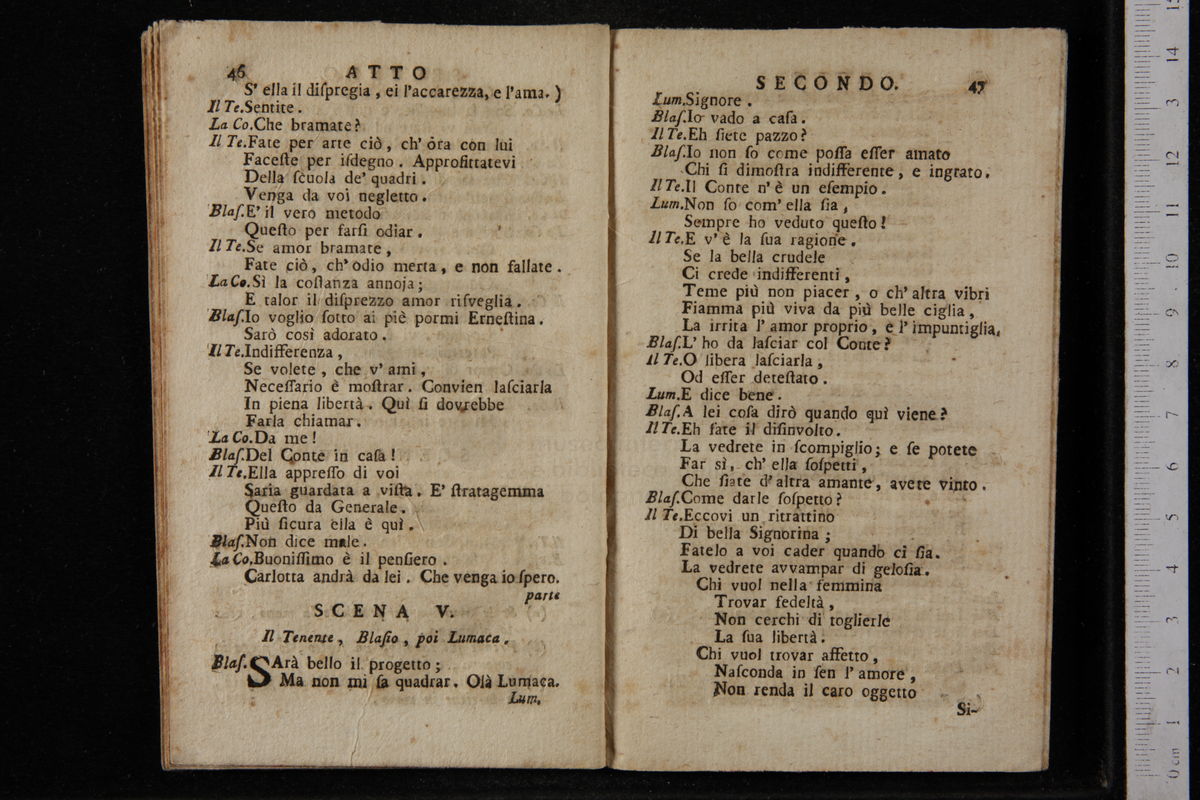 46 ATTO
S' ella il diſpregia, ei l'accarezza, e l'ama. )
Il Te.Sentite.
La Co.Che bramate?
Il Te.Fate per arte ciò, ch' óra con lui
Faceſte per iſdegno. Approfittatevi
Della ſcuola de' quadri.
Venga da voi negletto.
Blaſ.E' il vero metodo
Queſto per farſi odiar.
Il Te.Se amor bramate,
Fate ciò, ch' odio merta, e non fallate.
La Co.Sì la coſtanza annoja;
E talor il diſprezzo amor riſveglia.
Blaſ.Io voglio ſotto ai piè pormi Erneſtina.
Sarò così adorato.
Il Te.Indifferenza,
Se volete, che v' ami,
Neceſſario è moſtrar. Convien laſciarla
In piena libertà. Quì ſi dovrebbe
Farla chiamar.
La Co.Da me!
Blaſ.Del Conte in caſa!
Il Te.Ella appreſſo di voi
Saria guardata a viſta. E' ſtratagemma
Queſto da Generale.
Più ſicura ella è quì.
Blaſ.Non dice male.
La Co.Buoniſſimo è il penſiero.
Carlotta andrà da lei. Che venga io ſpero.
parte
SCENA V.
Il Tenente, Blaſio, poi Lumaca.
Blaſ.SArà bello il progetto;
Ma non mi ſa quadrar. Olà Lumaca.
Lum.
SECONDO. 47
Lum.Signore.
Blaſ.Io vado a caſa.
Il Te.Eh ſiete pazzo?
Blaſ.Io non ſo come poſſa eſſer amato
Chi ſi dimoſtra indifferente, e ingrato.
Il Te.Il Conte n' è un eſempio.
Lum.Non ſo com' ella ſia,
Sempre ho veduto queſto!
Il Te.E v' è la ſua ragione.
Se la bella crudele
Ci crede indifferenti,
Teme più non piacer, o ch' altra vibri
Fiamma più viva da più belle ciglia,
La irrita l' amor proprio, e l' impuntiglia.
Blaſ.L' ho da laſciar col Conte?
Il Te.O libera laſciarla,
Od eſſer deteſtato.
Lum.E dice bene.
Blaſ.A lei coſa dirò quando quì viene?
Il Te.Eh fate il diſinvolto.
La vedrete in ſcompiglio; e ſe potete
Far sì, ch' ella ſoſpetti,
Che ſiate d' altra amante, avete vinto.
Blaſ.Come darle ſoſpetto?
Il Te.Eccovi un ritrattino
Di bella Signorina;
Fatelo a voi cader quando ci ſia.
La vedrete avvampar di geloſia.
Chi vuol nella femmina
Trovar fedeltà,
Non cerchi di toglierle
La ſua libertà.
Chi vuol trovar affetto,
Naſconda in ſen l' amore,
Non renda il caro oggetto
Si-
0 cm 1 2 3 4 5 6 7 8 9 10 11 12 3 14 15